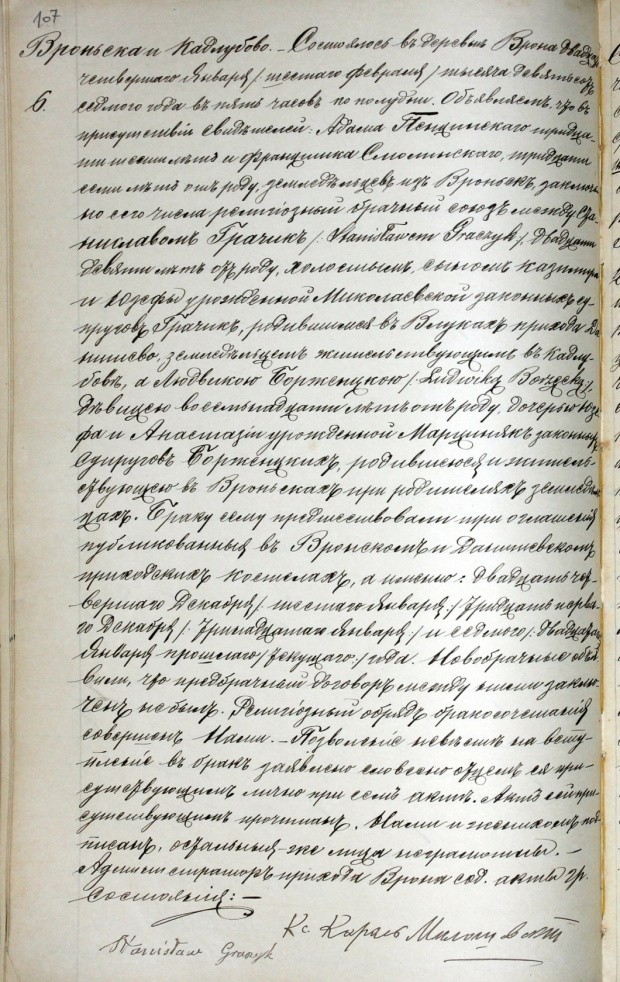 107
Вроньска и Кадлубово. – Состоялось въ деревнѣ Врона двадцать
6. четвертаго Января /: шестаго февраля :/ тысяча девятьсотъ
седмого года въ пять часовъ по полудни. Объявляемъ, что въ
присутствіи свидѣтелей: Адама тридца-
ти шести лѣтъ и Францишка Смолинскаго, тридцати
семи лѣтъ отъ роду, земледѣльцевъ изъ Вроньскъ, заключе-
но сего числа религіозный брачный союзъ между Ста-
ниславомъ Грачикъ /: Stanisławem Graczyk :/, двадцати
девяти лѣтъ отъ роду, холостымъ, сыномъ Казимира
и Юзефы урожденной Миколаевской законныхъ су-
пруговъ Грачикъ, родившимся въ прихода Да-
нишево, земледѣльцемъ жительствующимъ въ Кадлу-
бовѣ, а Людвикою Борженцкою /: Ludwiką Borzęcką :/
дѣвицею восемьнадцати лѣтъ отъ роду, дочерью Юзе-
фа и Анастазіи урожденной Марциннякъ законныхъ
супруговъ Борженцкихъ, родившеюся и житель-
ствующею въ Вроньскахъ при родителяхъ земледѣль-
цахъ. Браку сему предшествовали три оглашенія
публикованныя въ Вронскомъ и Данишевскомъ
приходскихъ костелахъ, а именно: двадцать чет-
вертаго Декабря /: шестаго Января :/ Тридцать перва-
го Декабря /: Тринадцатаго Января :/ и седмого /: двадцатаго
Января прошлаго /: текущаго :/ года. Новобрачные объя-
вили, что предбрачный договоръ между ними заклю-
ченъ не былъ. Религіозный обрядъ бракосочетанія
совершенъ Нами. – Позволеніе невѣстѣ на всту-
пленіе въ бракъ заявлено словесно отцемъ ея при-
сутствующимъ лично при семъ актѣ. Актъ сей при-
сутствующимъ прочитанъ, Нами и женихомъ под-
писанъ, остальныя-же лица неграмотны. –
Администраторъ прихода Врона сод. акты гр.
состоянія: –
Кс. Кароль
Stanisław Graczyk